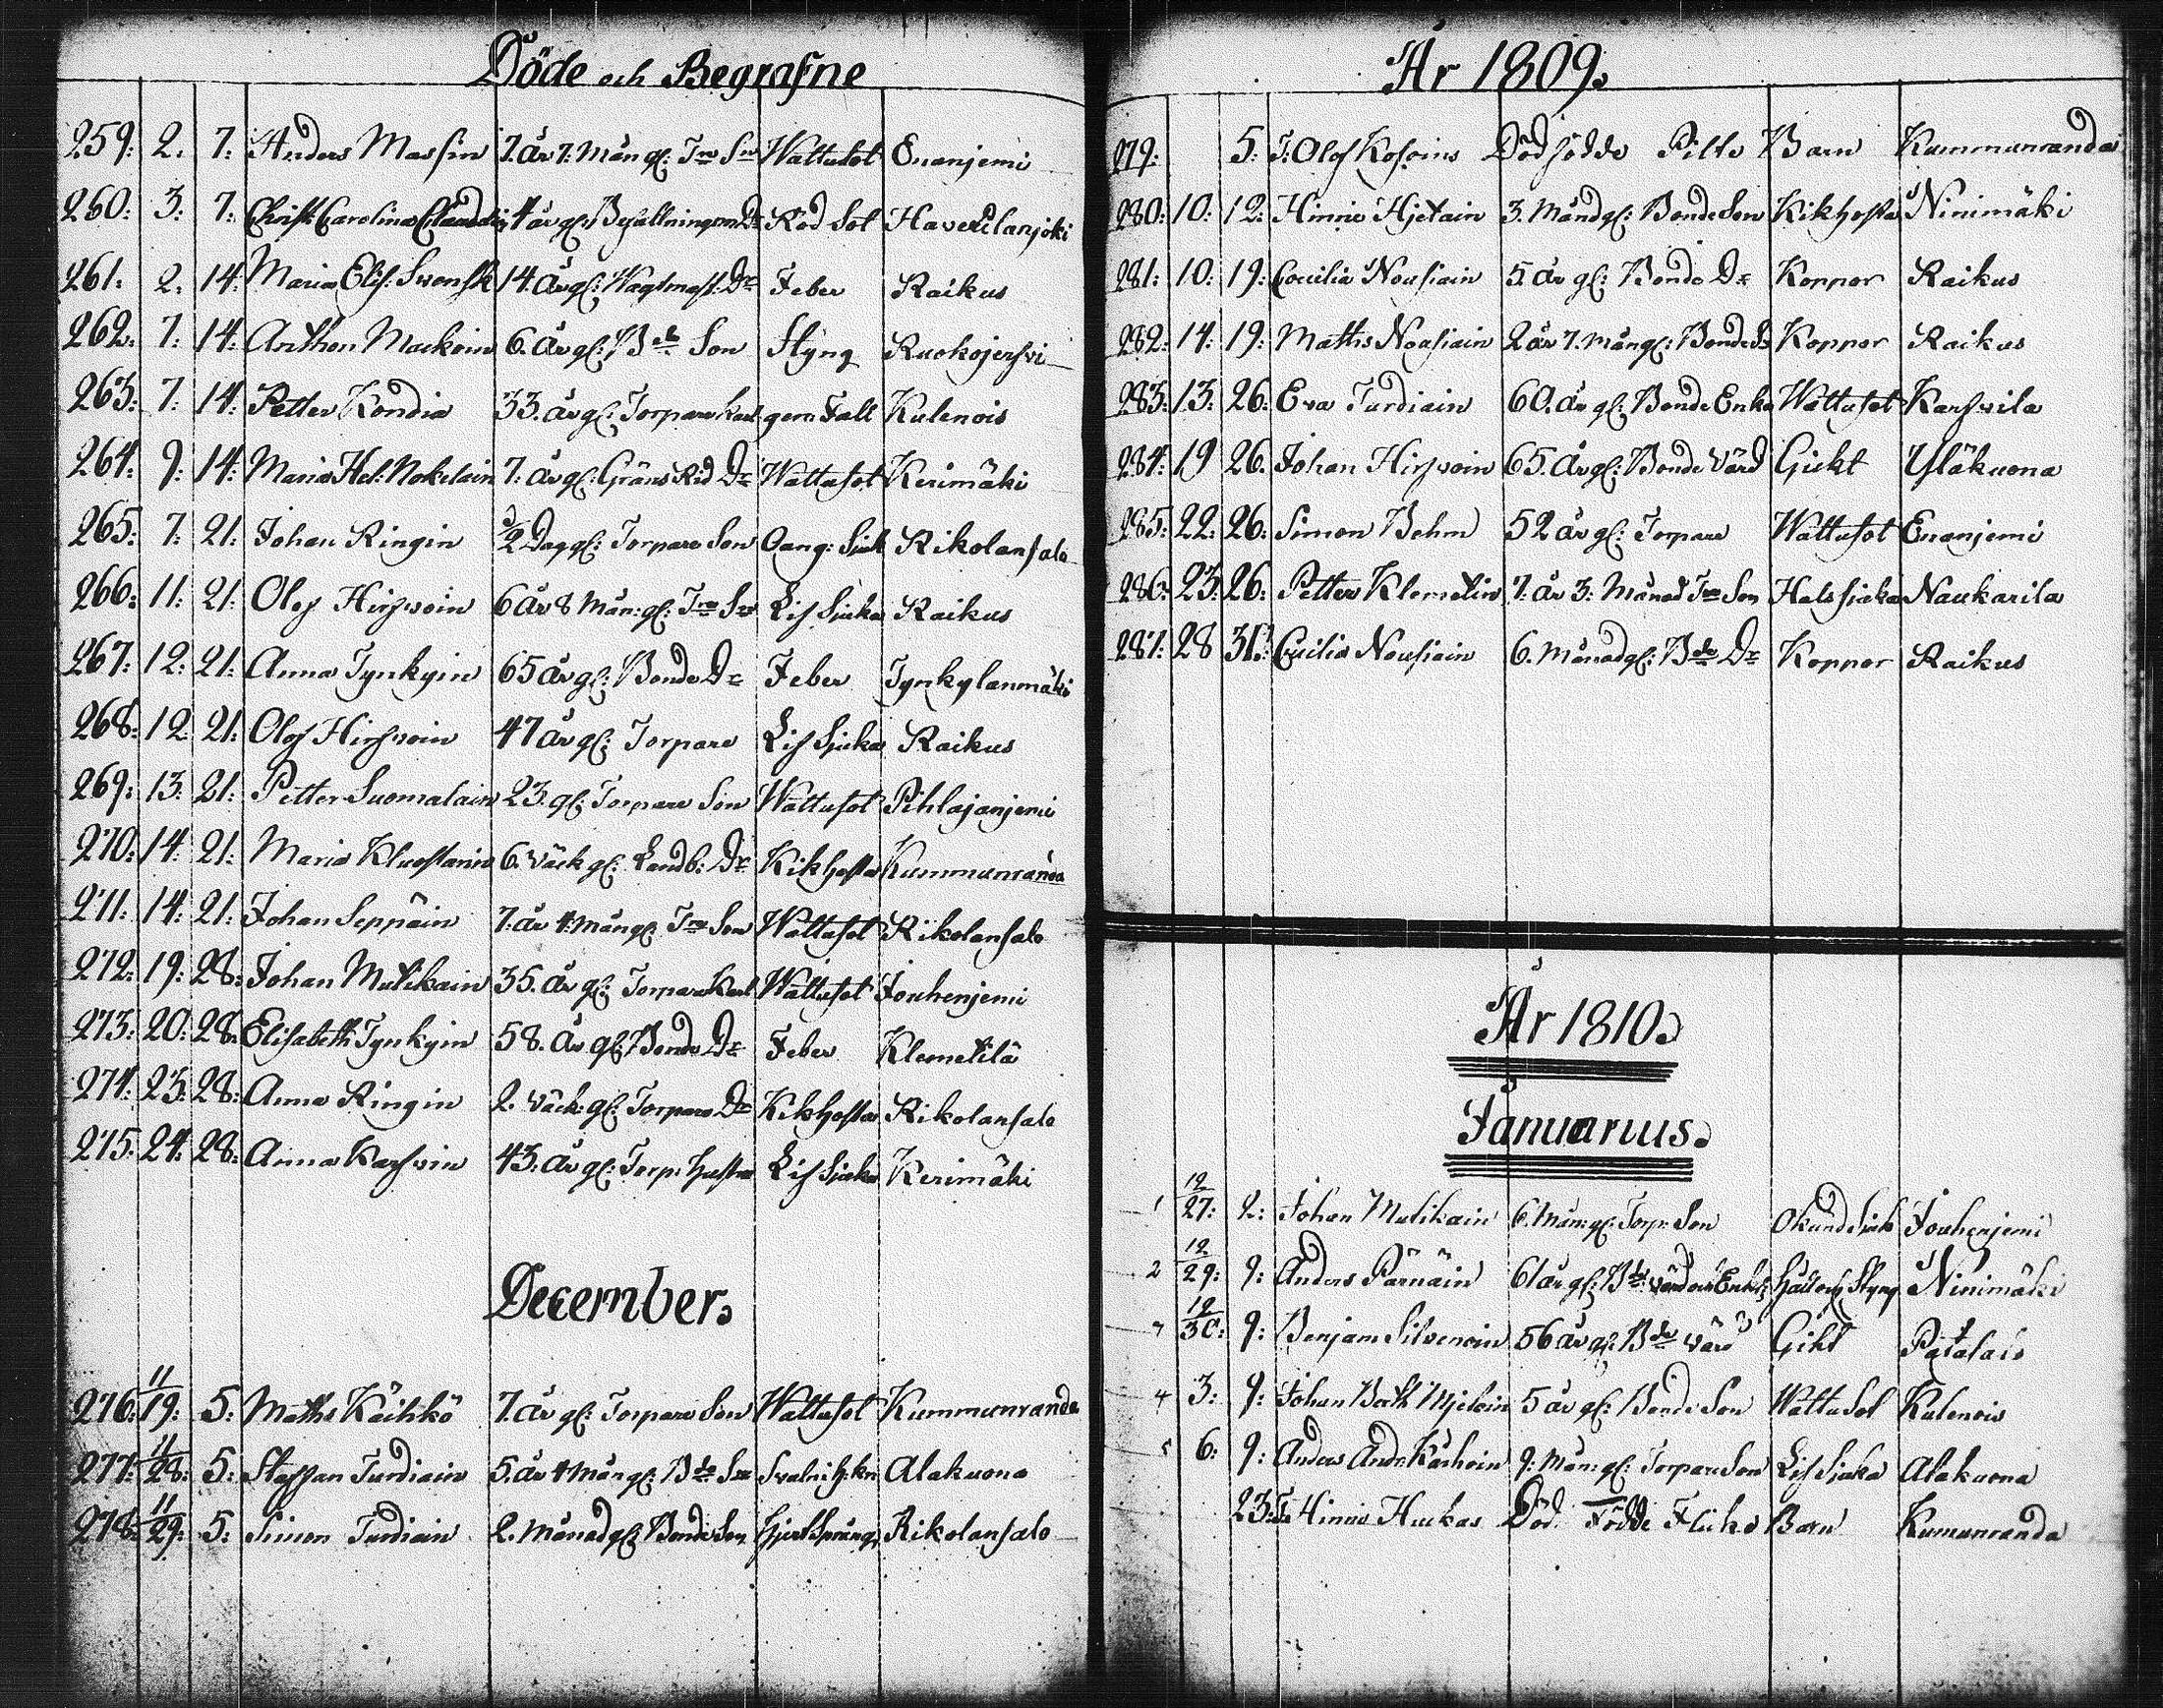 Döde och Begrafne
259: 2. 7: Anders Massin 7. år 7. Mån gl: Tre Sn Wattusot Enanjemi
260: 3: 7: Christ: Carolina 4 år gl: Befallningsm Dr Röd Sot Haverilanjoki
261. 2. 14: Maria Elis: Swensk 14. År gl: Wagtmest: Dr Feber Raikus
262: 7: 14: Anthon Mackoin 6. År gl: Bde Son Styng Ruokojerfvi
263: 7: 14: Petter Kondia 33. år gl: Torpare Karl gem Fall Kulenois
264: 9: 14: Maria Hel: Nokelain 7: år gl: Gräns Rid Dr Wattusot Kerimäki
265: 7: 21: Johan Ringin Dag gl: Torpare Son Oang: Siuk Rikolansalo
266: 11: 21: Olof Hirfvoin 6 År 8 Mån: gl: Tre Sn Lif Sjuka Raikus
267: 12: 21: Anna Tynkyin 65 år gl: Bonde Dr Feber Tynkylänmäki
268: 12 21: Olof Hirfvoin 47 år gl: Torpare Lif Sjuka Raikus
269: 13: 21: Petter Suomalain 23. gl: Torpare Son Wattusot Pihlajanjemi
270: 14: 21: Maria Kluostarin 6. väck gl: Landb: Dr Kikhosta Kummunranda
271: 14: 21: Johan Seppäin 7: år 4: mån gl: Tre Son Wattusot Rikolansalo
272: 19: 28: Johan Mutikain 35. år gl: Torpare Karl Wattusot Jouhenjemi
273: 20: 28. Elisabeth Tynkyin 58. År gl: Bonde Dr Feber Klemetilä
274: 23: 28: Anna Ringin 2. väck: gl: Torpare Dr Kikhosta Rikolansalo
275: 24: 28: Anna Karfvin 43: År gl: Torp: hustru Lif Sjuka Kerimäki
December.
276: 11/19: 5: Maths Käihkö 7. år gl: Torpare Son Wattusot Kummunranda
277: 11/28: 5: Staffan Turdiain 5. år 4 mån gl: Bde Sn Alakuona
278: 11/29: 5: Simon Turdiain 2. Månad gl: Bonde Son Rikolansalo
År 1809.
279: 5: T: Olof Kosoins Dödfödde Pilte Barn Kummunranda
280: 10: 12: Hinric Hjetain 3. Månd gl: Bonde Son Kikhosta Ninimäki
281: 10: 19: Cecilia Nousiain 5. år gl: Bonde Dr Koppor Raikus
282: 14: 19: Maths Nousiain 2 år 7. mån gl: Bonde Sn Koppor Raikus
283: 13: 26: Eva Turdiain 60. år gl: Bonde Enka Wattusot Karfvila
284: 19 26. Johan Hirfvoin 65. år gl: Bonde Värd Gickt Yläkuona
285: 22: 26: Simon Behm 52 år gl: Torpare Wattusot Enanjemi
286: 23: 26: Petter Klemetin 7. år 3: Månad Tre Son Halssjuka Naukarila
287: 28 31: Cecilia Nousiain 6. Månad gl: Bde Dr Koppor Raikus
År 1810.
Januarius.
1 12/27: 2: Johan Mutikain 6. mån: gl: Torp: Son Okänd Siuk Jouhenjemi
2 12/29: 9: Anders Pärnäin 61 år gl: Bde Håll och Styng Ninimäki
3 12/30: 9: Benjam Silvenoin 56 år gl: Bde värd Gikt Patasalo
4 3: 9: Johan Mjeloin 5 år gl: Bonde Son Wattusot Kulenois
5 6: 9: Anders Andr: Kärhoin 9: Mån: gl: Torpare Son Lif Sjuka Alakuona
23: T: Hinric Huckas Död Födde Flicko Barn Kumunranda